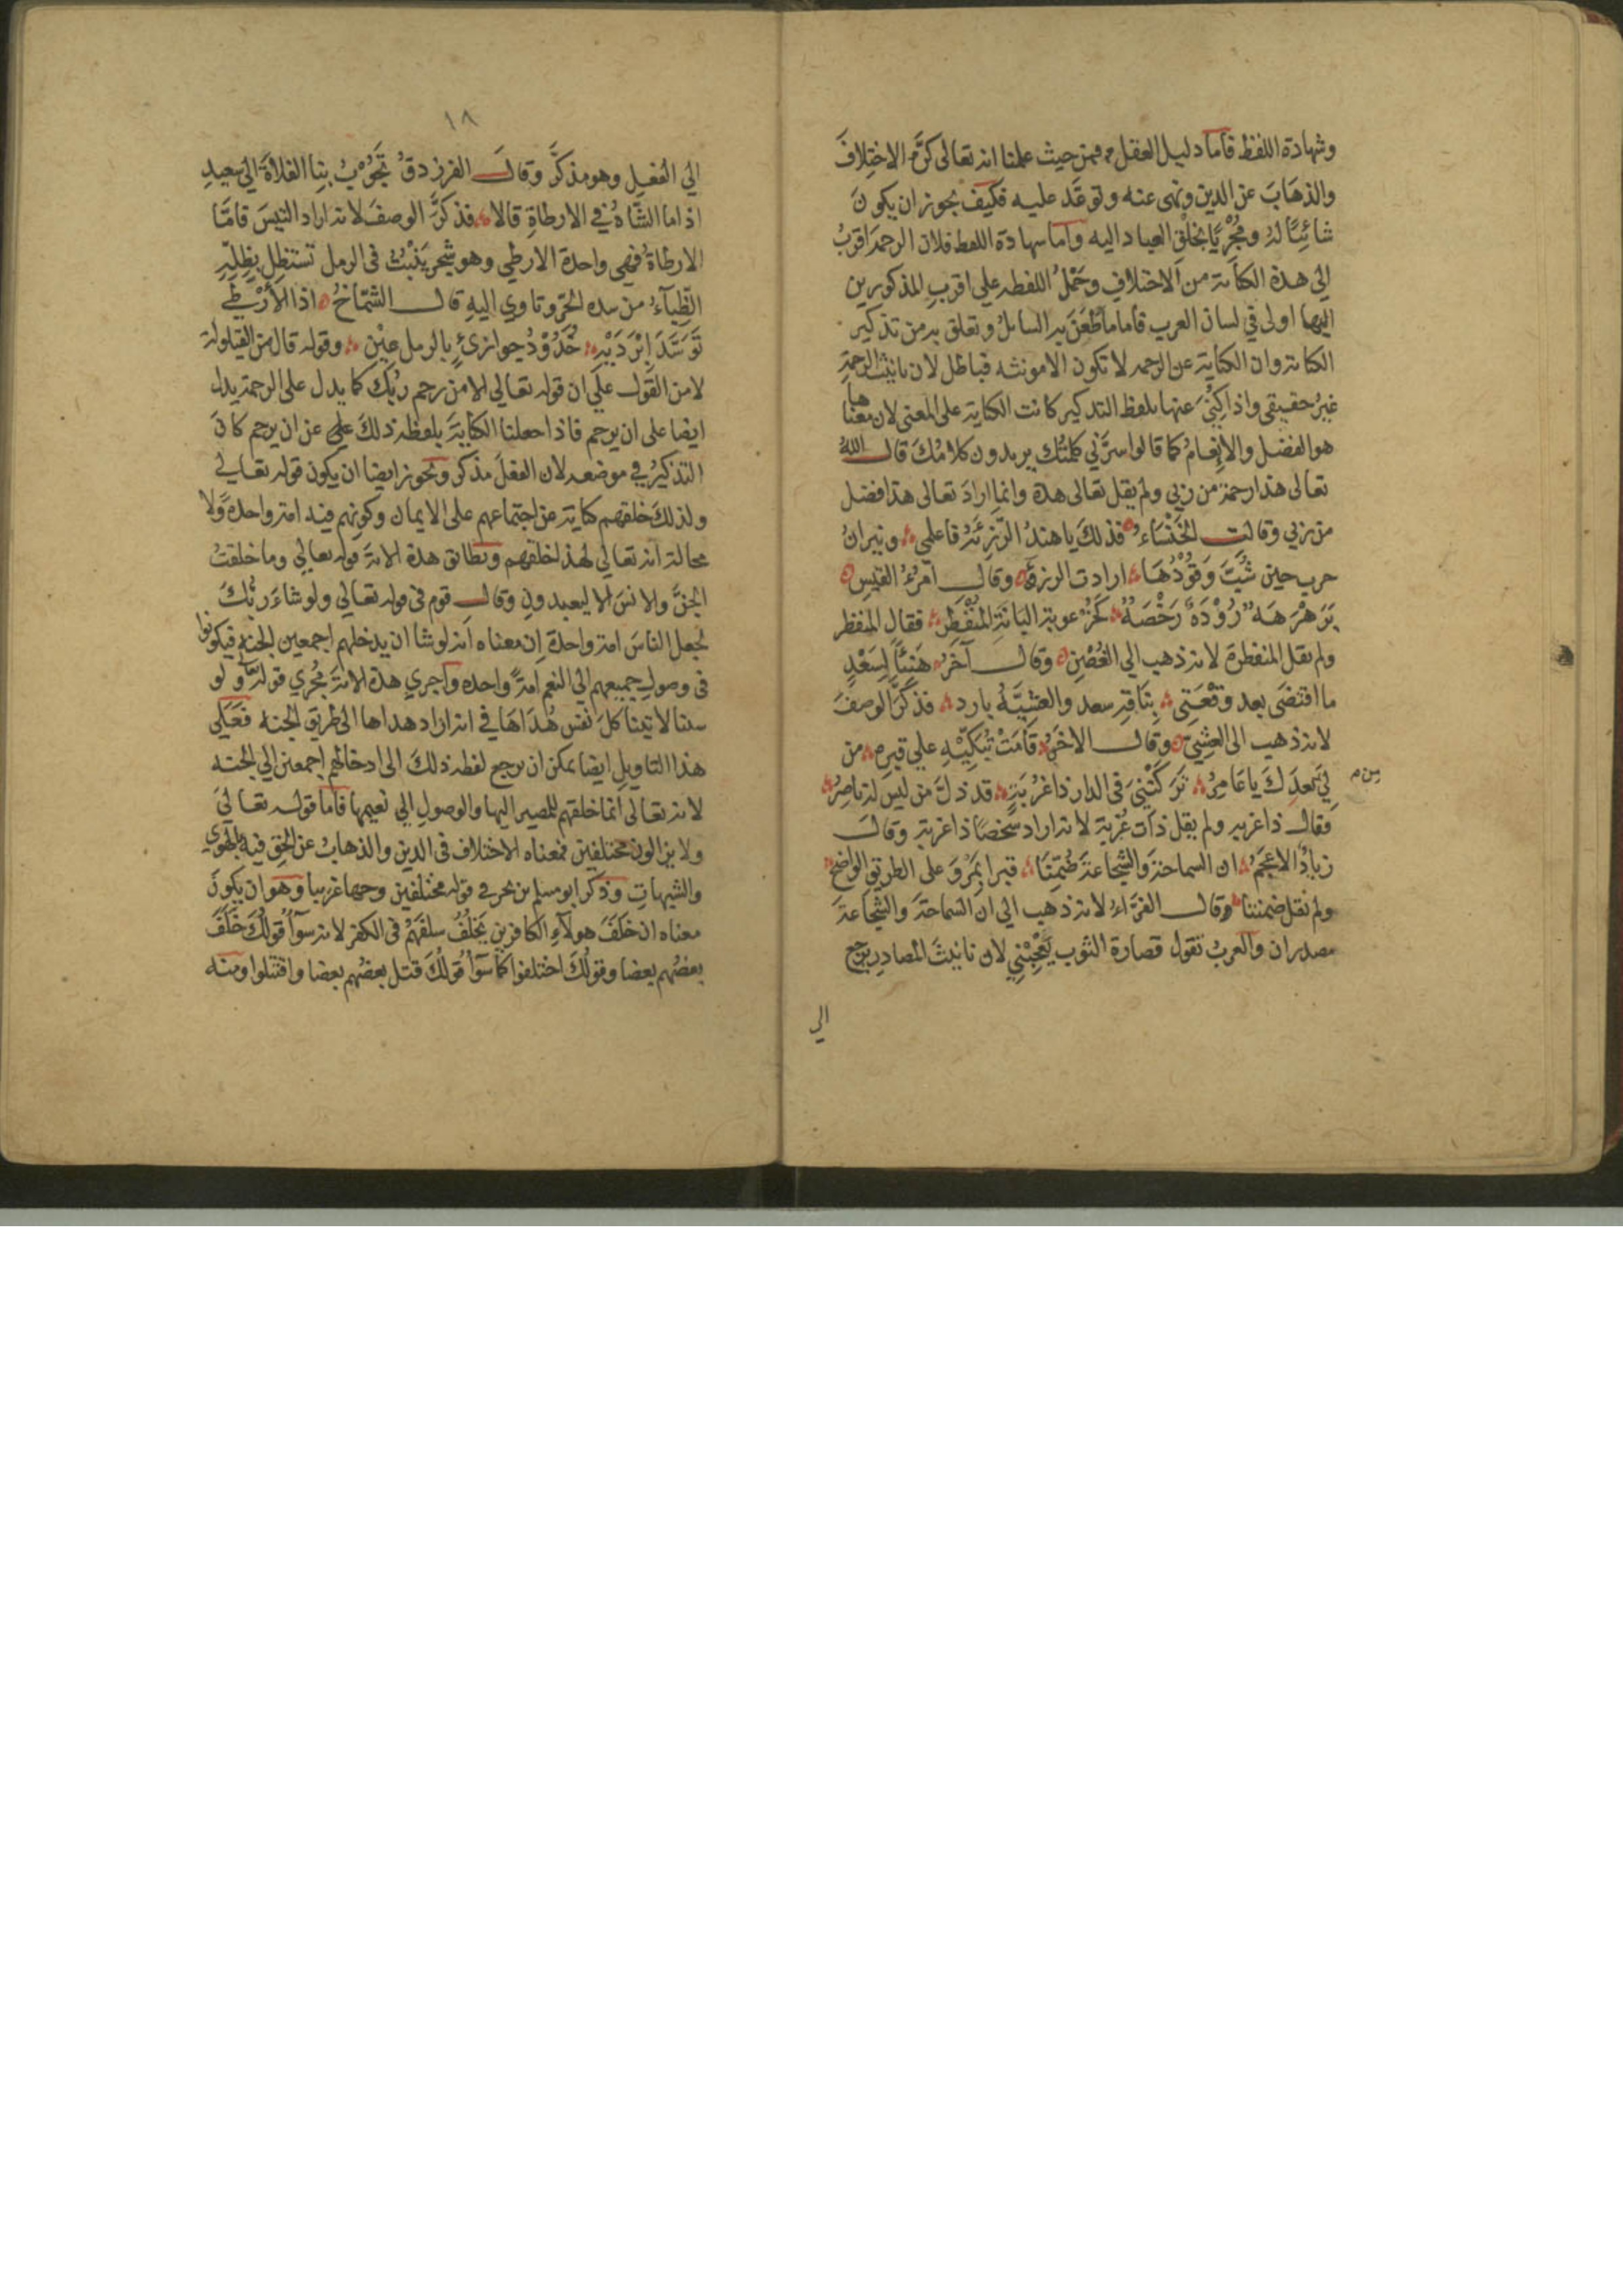 وشهادة اللفظ فأما دليل العقل فمن حيث علمنا انه تعالى كرّه الاختلافَ
والذهَابَ عن الدين ونهى عنه وتوعّد عليه فكيف يجوز ان يكون
شائيًا لهُ ومُجْرِيًا بخلق العباد اليه وأما شهادة اللفظ فلان الرحمة اقربُ
الى هذه الكناية من الاختلاف وحَمْلُ اللفظ على اقرب المذكورين
اليها اولى في لسان العرب فأما ما طعَنَ به السائلُ وتعلق به من تذكير
الكناية وان الكناية عن الرحمة لا تكون الا مونثه فباطل لان تانيث الرحمة
غيرُ حقيقى واذا كنى عنها بلفظ التذكير كانت الكناية على المعنى لان معناها
هو الفضل والانعامُ كما قالوا سرَّني كلمتُك يريدون كلامُكَ قال اللهُ
تعالى هذا رحمة من ربي ولم يقل تعالى هذه وانما ارادَ تعالى هذا فضل
من ربي وقالت الخَنْسَاءُ فذلكَ يا هندُ الرَّزِئَةُ فاعلمي ونيرانُ
حرب حين شُبَّ وَقُوْدُهَا ارادت الرزء وقال امرُءُ القيس
بَرَهْرَهَةٌ رُؤْدَةٌ رَخْصَةٌ كَخُرْعوبة البَانَةِ المُنْفَطِر فقال المنفطر
ولم يقل المنفطرة لانه ذهب الى الغُصْنِ وقال آخَرُ هَنِيْئًا لِسَعْدٍ
ما اقتضَى بعد وقْعَتِى بِنَاقةِ سعد والعَشِيَّةُ بارد فذكّرَ الوصفَ
لانه ذهب الى العشِيّ وقال الاخرُ قَامَتْ تُبَكِّيْهِ على قبره من
لِيَ من بعدِكَ يا عَامِرُ تَرَكْتَنِيَ فى الدار ذا غُرْبَةٍ قد ذلَّ من ليسَ له ناصِرُ
فقال ذا غربة ولم يقل ذات غُرْبة لانه اراد شخصًا ذا غربة وقالَ
زيادُ الاعجَمُ ان السماحةَ والشجاعةَ ضُمِّنَا قبرا بمَرْوَ على الطريق الواضحِ
ولم نقل ضمنتا وقال الفرّاءُ لانه ذهب الى ان السماحةَ والشجاعةَ
مصدران والعربُ تقول قصارة الثوب يُعْجِبُنِي لان تانيثَ المصادر يرجع
الى
١٨
الى الفعل وهو مذكّر وقالَ الفرزدقُ تَجُوْبُ بِنا الفلاةَ الى سعيدٍ
اذا ما الشّاةُ في الارطاةِ قالا فذكّرَ الوصفَ لانه اراد التيسَ فامّا
الارطاةُ فهى واحدة الارطي وهو شجر يَنْبُتُ فى الرمل تستظل بظلّه
الظِّبآءُ من شده الحَرّ وتاوي اليهِ قال الشمّاخُ اذا الأَرْطَى
تَوَسَّدَ ابْرَدَيْهِ خُدُوْدُ جوازيءٍ بالرمل عِيْنِ وقوله قال من القيلولة
لا من القول على ان قوله تعالى الا من رحم ربُّك كما يدل على الرحمة يدل
ايضا على ان يرحم فاذا جعلنا الكنايةَ بلفظه ذلكَ على عن ان يرحم كانَ
التذكيرُ في موضعه لان الفعلَ مذكر ونجوز ايضا ان يكون قوله تعالى
ولذلكَ خلقهم كناية عن اجتماعهم على الايمان وكونهم فيه امة واحدة ولا
محالة انه تعالى لهذ لخلقهم ويطابق هذه الاية قوله تعالى وما خلقتُ
الجنَّ والانسَ الا ليعبدونِ وقال قوم فى قوله تعالي ولو شاءَ ربُّكَ
لجعل الناسَ امة واحدة ان معناه انه لو شا ان يدخلهم اجمعين الجنة فيكونوا
فى وصول جميعهم الى النعم امةً واحده واجري هذه الايةَ مُجْري قولهِ ولو
شئنا لاتينا كلَّ نفس هُدَاهَا في انه اراد هداها الى طريق الجنه فعَلى
هذا التاويل ايضا يمكن ان يرجع لفظه ذلكَ الى ادخالهم اجمعين الى الجنه
لانه تعالى انما خلقهم للمصير اليها والوصول الى نعيمها فأما قوله تعالىَ
ولا يزالون مختلفين فمعناه الاختلاف فى الدين والذهابُ عن الحق فيه بالهوي
والشبهاتِ وذكر ابو مسلم بن بحر في قوله مختلفين وجها غريبا وهو ان يكونَ
معناه ان خلَفَ هولآءِ الكافرين يَخْلُفُ سلَفَهُمْ فى الكفر لانه سوآء قولُكَ خَلَفَ
بعضُهم بعضا وقولُكَ اختلفوا كما سوآء قولُكَ قتل بعضُهم بعضا واقتتلوا ومنه